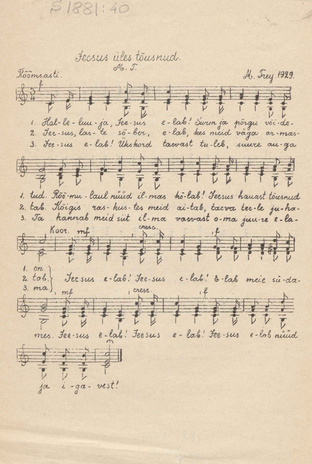 S 1881:40
Jeesus üles tõusnud.
H. T.
Rõõmsasti.
M. Frey 1929.
f
1. Hal-le-luu-ja, Jee-sus e-lab! Surm ja põrgu või-de-
2. Jee-sus, las-te sõ-ber, e-lab, kes meid väga ar-mas-
3. Jee-sus e-lab! Ükskord taevast tu-leb, suure au-ga
1. tud. Rõõ-mu-laul nüüd il-mas kõ-lab! Jeesus hauast tõusnud
2. tab. Kõigis ras-kus-les meid ai-tab, taeva tee-le ju-ha-
3. Ta hannab meid siit il-ma vaevast o-ma juu-re e-la-
Koor. mf cresc. f
1. on.
2. tab. Jee-sus e-lab! Jee-sus e-lab! E-lab meie süda-
3. ma
mf cresc. f
mes. Jee-sus e-lab! Jee-sus e-lab! Jee-sus e-lab nüüd
ja i-ga-vest!